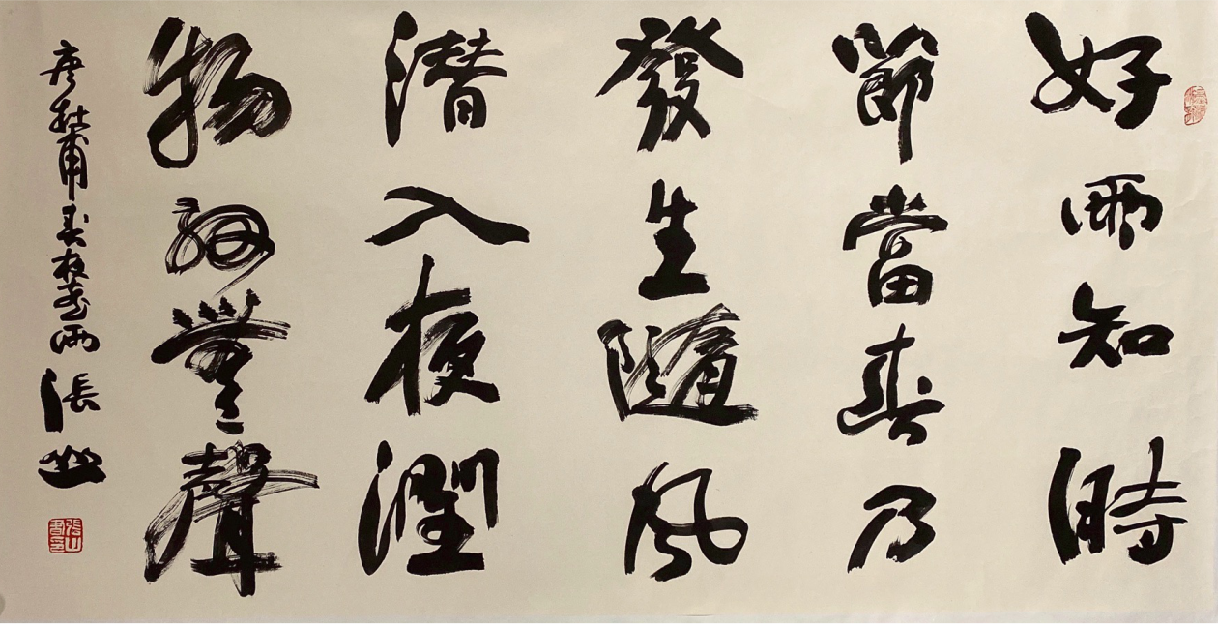 好雨知時
節當春乃
發生隨風
潛入夜潤
物細無聲
唐杜甫春夜喜雨 張山